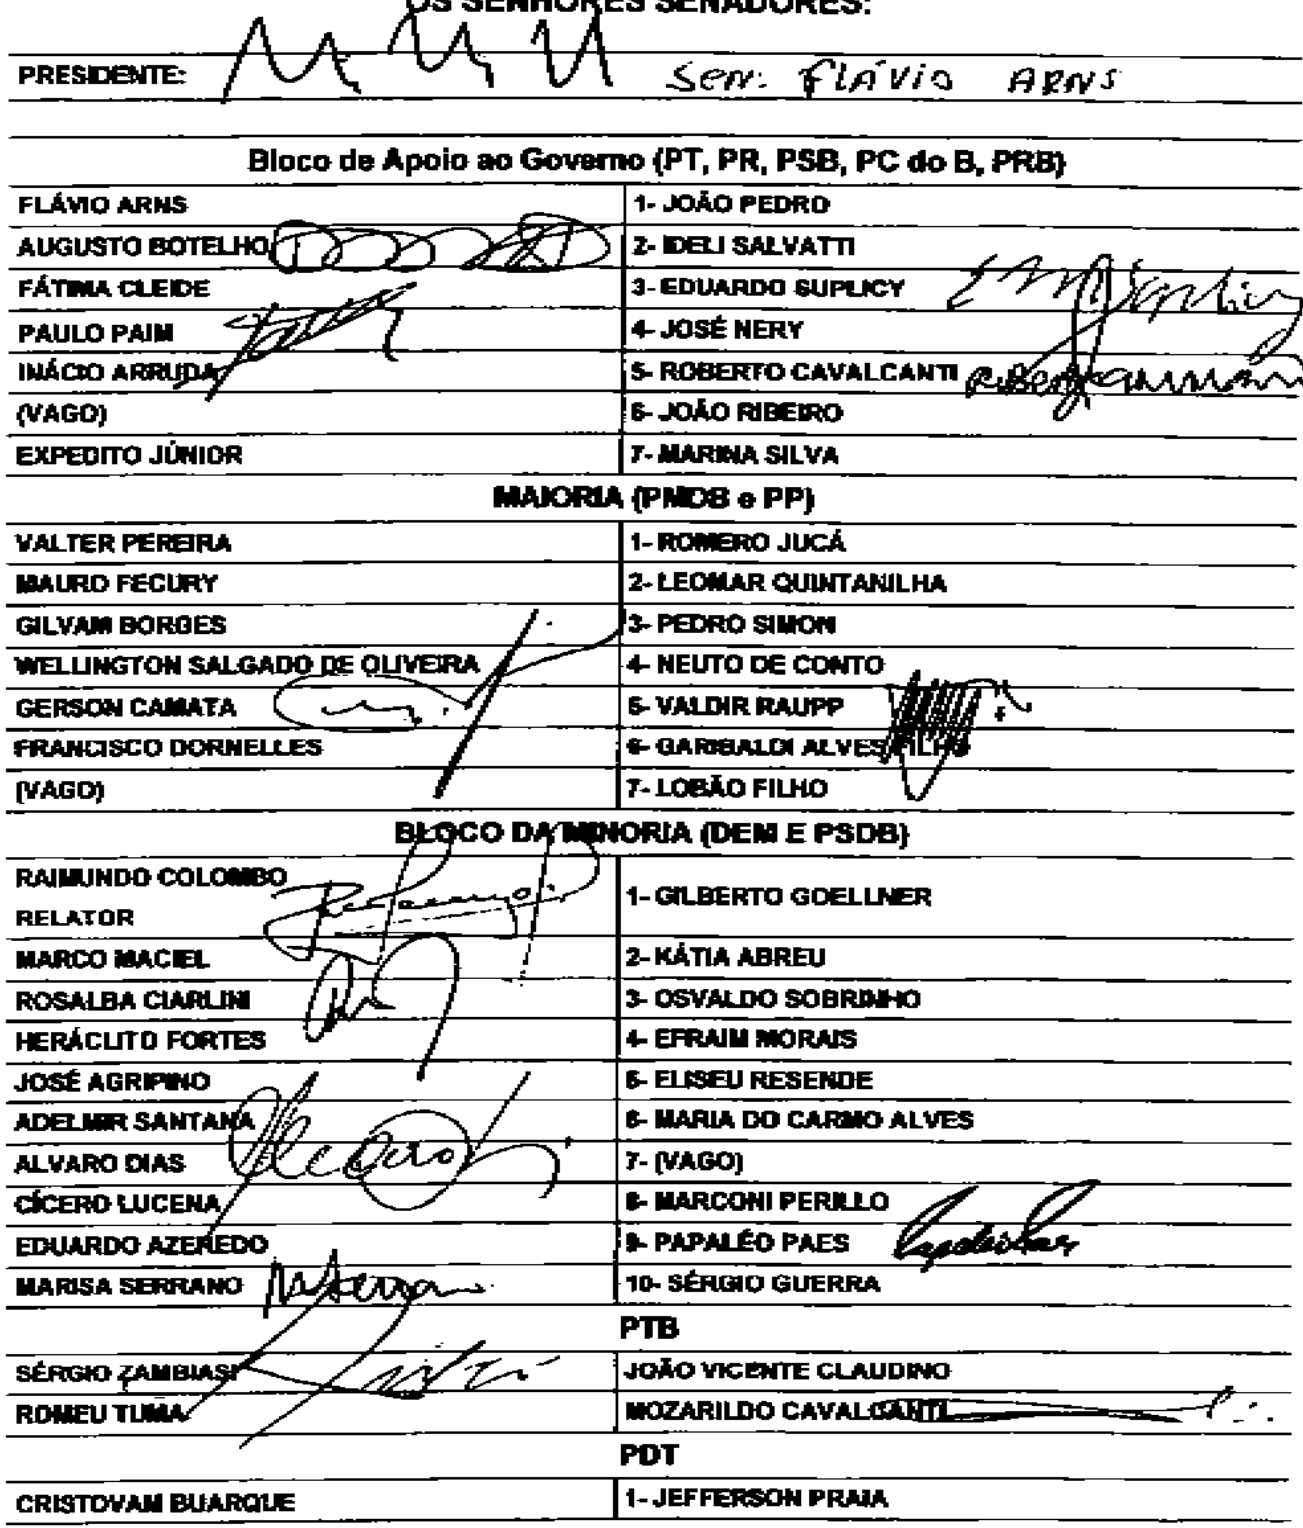 OS SENHORES SENADORES:
PRESIDENTE: Sen: FLÁVIO ARNS
Bloco de Apoio ao Governo (PT, PR, PSB, PC do B, PRB)
FLÁVIO ARNS 1- JOÃO PEDRO
AUGUSTO BOTELHO 2- IDELI SALVATTI
FÁTIMA CLEIDE 3- EDUARDO SUPLICY
PAULO PAIM 4- JOSÉ NERY
INÁCIO ARRUDA 5- ROBERTO CAVALCANTI
(VAGO) 6- JOÃO RIBEIRO
EXPEDITO JÚNIOR 7- MARINA SILVA
MAIORIA (PMDB e PP)
VALTER PEREIRA 1- ROMERO JUCÁ
MAURO FECURY 2- LEOMAR QUINTANILHA
GILVAM BORGES 3- PEDRO SIMON
WELLINGTON SALGADO DE OLIVEIRA 4- NEUTO DE CONTO
GERSON CAMATA 5- VALDIR RAUPP
FRANCISCO DORNELLES 6- GARIBALDI ALVES FILHO
(VAGO) 7- LOBÃO FILHO
BLOCO DA MINORIA (DEM E PSDB)
RAIMUNDO COLOMBO
RELATOR 1- GILBERTO GOELLNER
MARCO MACIEL 2- KÁTIA ABREU
ROSALBA CIARLINI 3- OSVALDO SOBRINHO
HERÁCLITO FORTES 4- EFRAIM MORAIS
JOSÉ AGRIPINO 5- ELISEU RESENDE
ADELMIR SANTANA 6- MARIA DO CARMO ALVES
ALVARO DIAS 7- (VAGO)
CÍCERO LUCENA 8- MARCONI PERILLO
EDUARDO AZEREDO 9- PAPALÉO PAES
MARISA SERRANO 10- SÉRGIO GUERRA
PTB
SÉRGIO ZAMBIASI JOÃO VICENTE CLAUDINO
ROMEU TUMA MOZARILDO CAVALCANTI
PDT
CRISTOVAM BUARQUE 1- JEFFERSON PRAIA